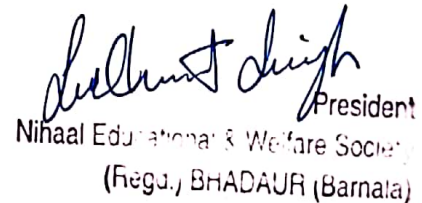 Singh
President
Nihaal Educational & Welfare Society
(Regd.) BHADAUR (Barnala)